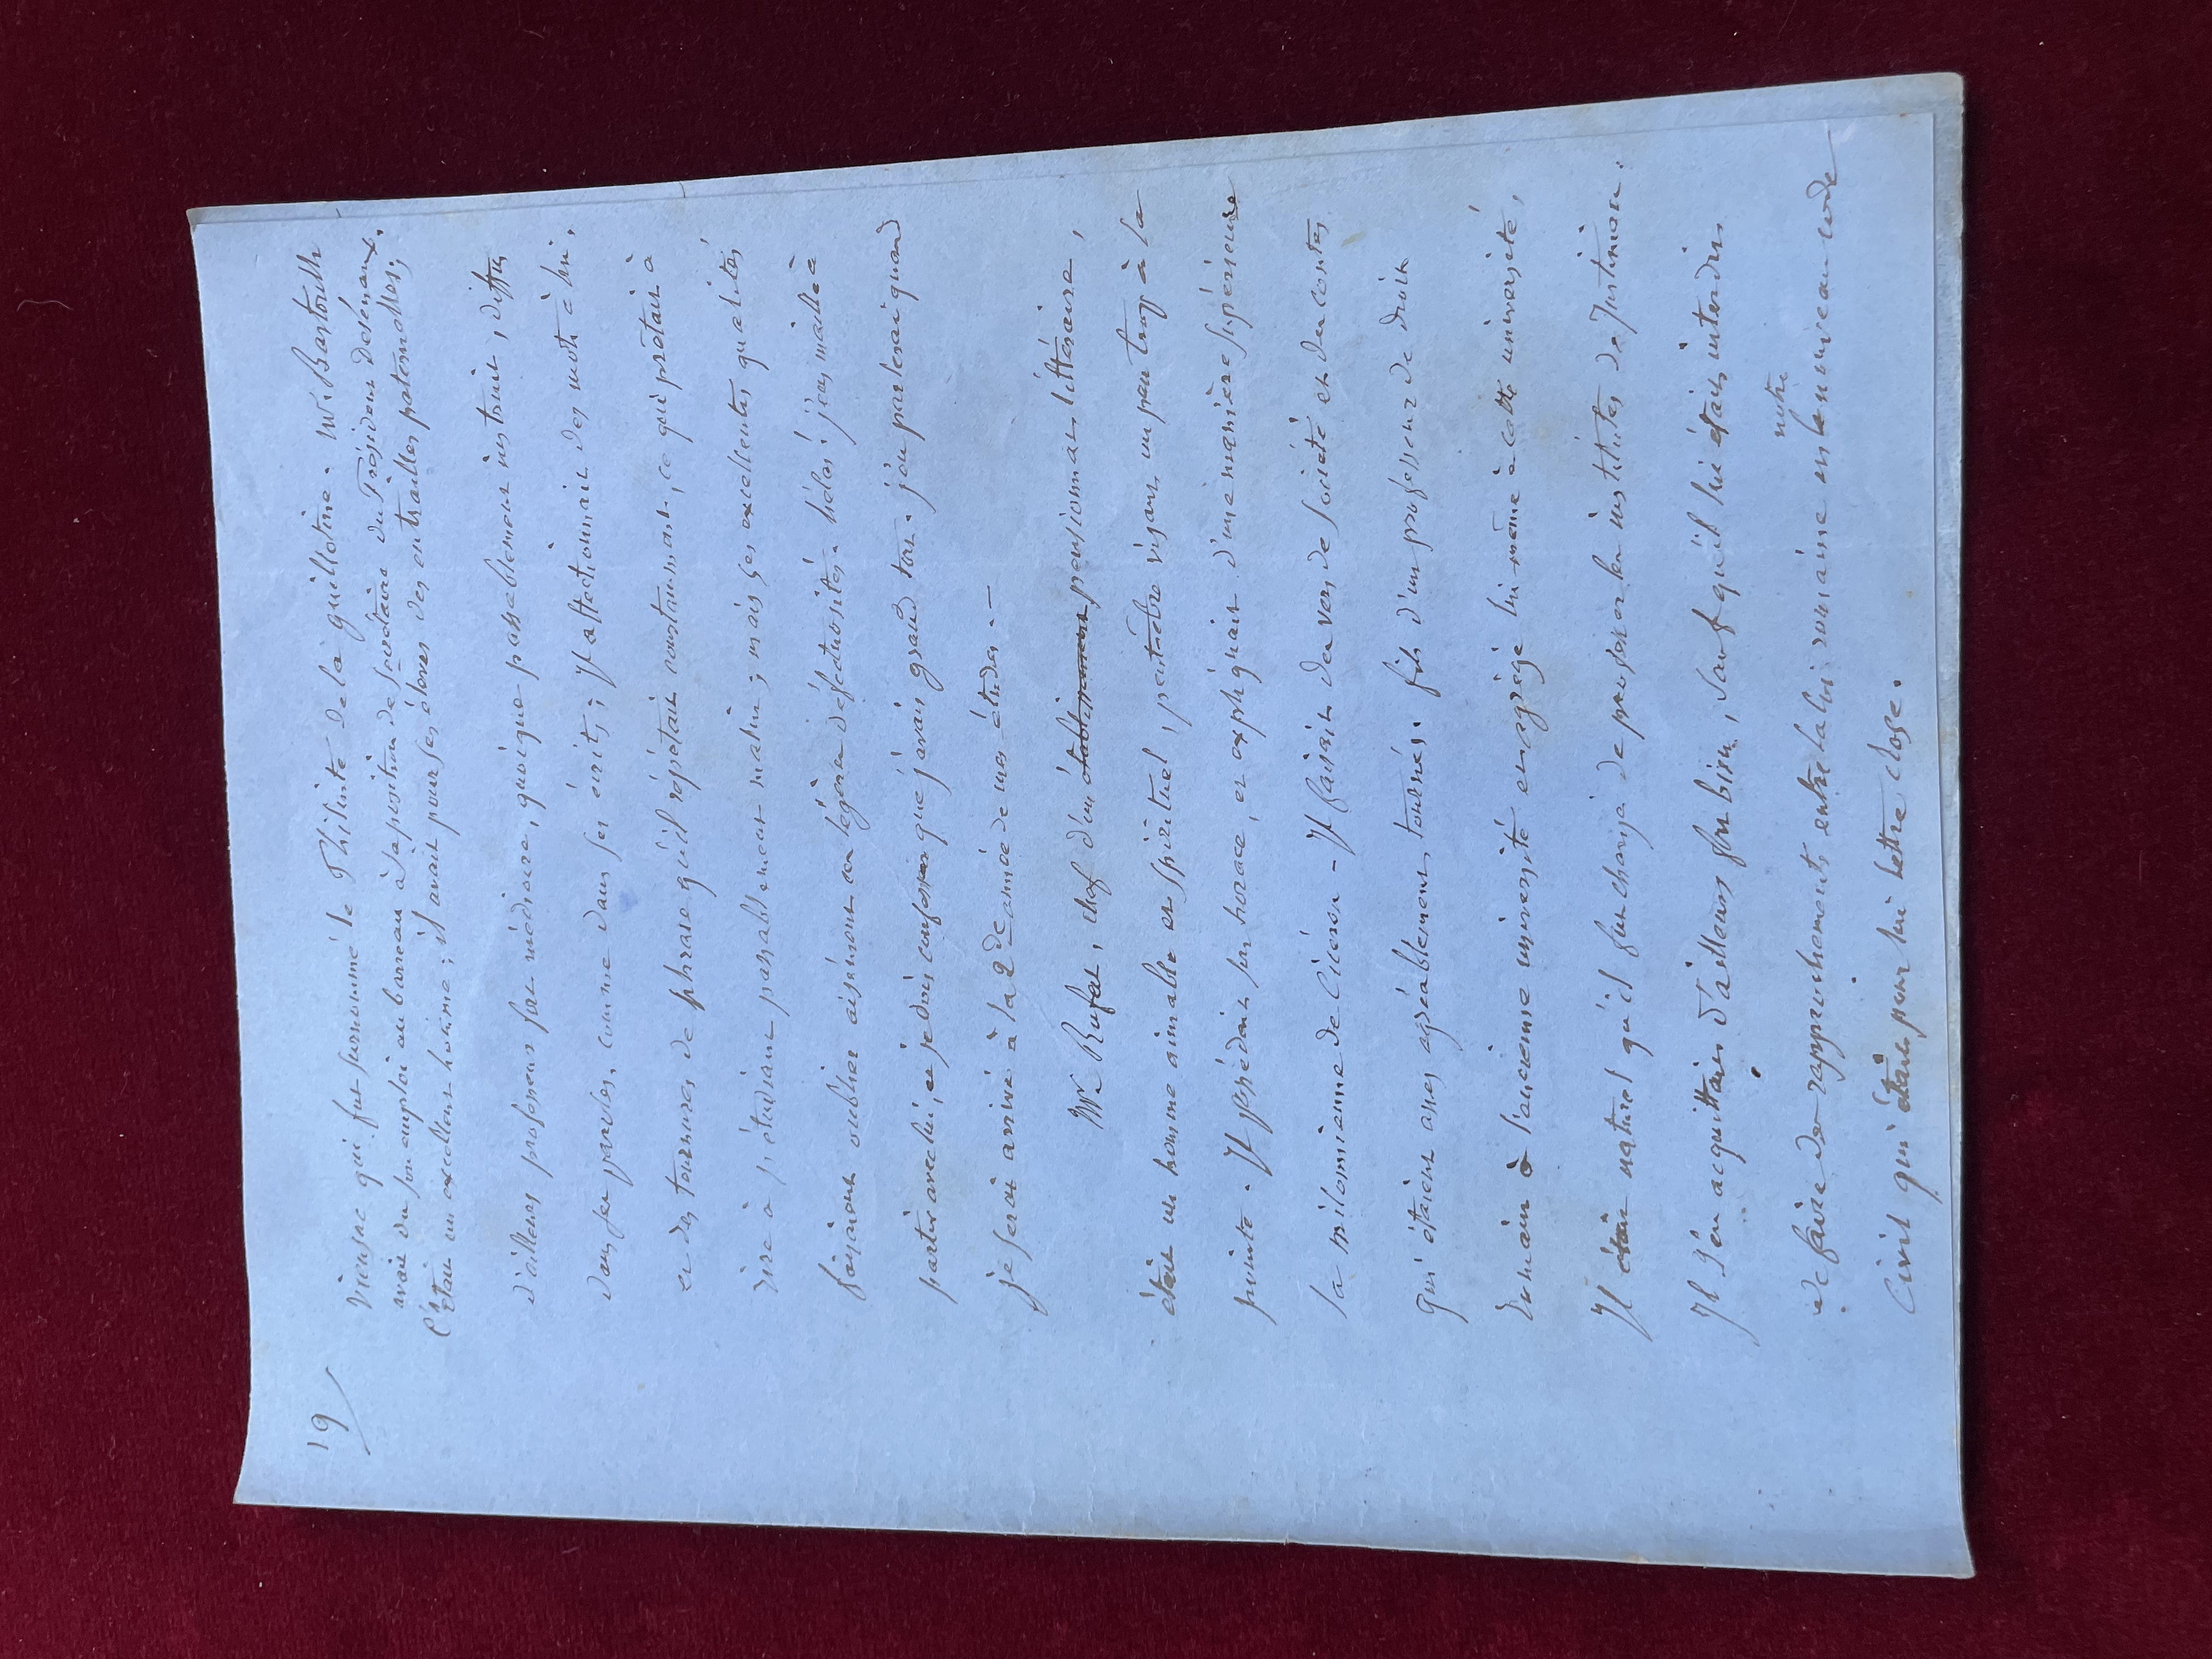 19
Vieusac qui fut surnommé le Philinte de la guillotine. Mr. Bastoulh
avait du son emploi au barreau à sa position de secrétaire du Président Desénaux.
C'était un excellent homme ; il avait pour ses élèves des entrailles paternelles,
d'ailleurs professeur fort médiocre, quoique passablement instruit, diffus
dans ses paroles, comme dans ses écrits ; Il affectionnait des mots à lui,
et des tournures de phrase qu'il répétait constamment, ce qui prêtait à
rire à l'étudiant passablement malin ; mais ses excellentes qualités
faisaient oublier aisément ces légères défectuosités. hélas ! j'eus maille à
partir avec lui, et je dois confesser que j'avais grand tort. j'en parlerai quand
je serai arrivé à la 2de année de mes études. —
Mr Rufat, chef d'un établissement pensionnat littéraire,
était un homme aimable et spirituel, peut-être visant un peu trop à la
pointe. Il possédait son horace, et expliquait d'une manière supérieure
la milonienne de Cicéron - Il faisait des vers de société et des contes
qui étaient assez agréablement tournés. fils d'un professeur de droit
romain à l'ancienne université et agrégé lui même à cette université,
Il était naturel qu'il fut chargé de professer les institutes de Justinien.
Il s'en acquittait d'ailleurs fort bien, sauf qu'il lui était interdit
notre
de faire des rapprochements entre la loi romaine et le nouveau code
Civil qui était pour lui lettre close.